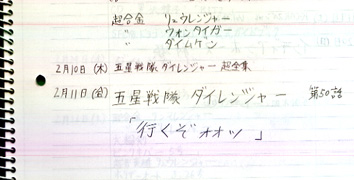 超合金 リュウレンジャー
〃 ウォンタイガー
〃 ダイムゲン
2月10日(木) 五星戦隊ダイレンジャー 超全集
2月11日(金) 五星戦隊 ダイレンジャー 第50話
「行くぞォォッ」